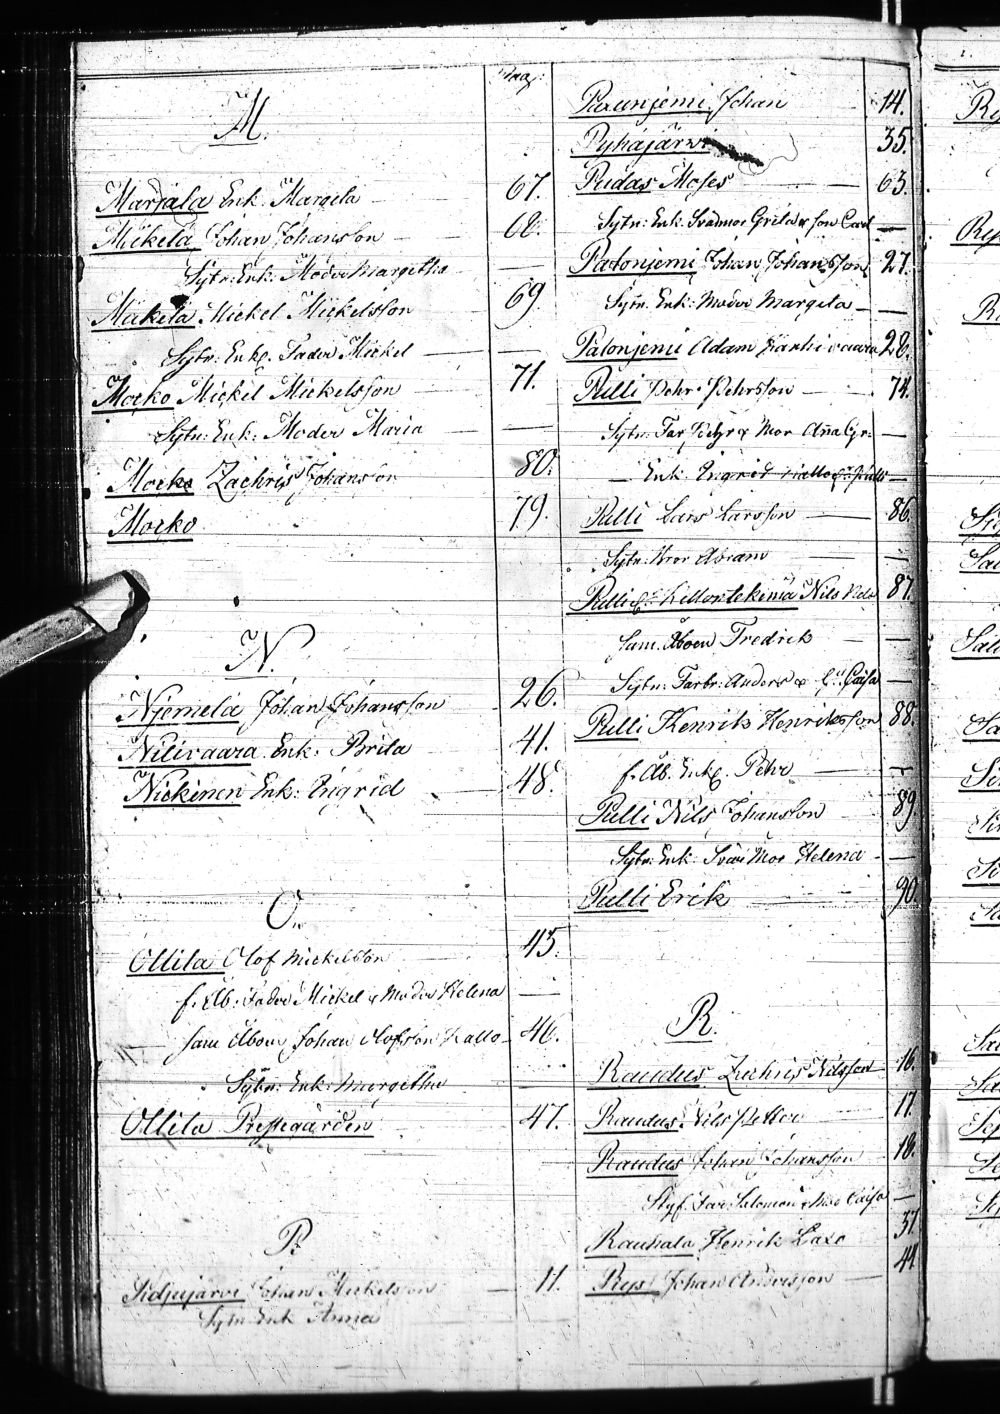 Pag:
M.
Marjala Enk. Margeta 67.
Mikelä Johan Johansson 68.
Sytn: Enk: Moder Margetha —
Mäkelä Mickel Mickelsson 69.
Sytn: Enkl. Fader Mickel —
Morko Mickel Mickelsson 71.
Sytn: Enk: Moder Maria —
Morko Zachris Johansson 80.
Morko 79.
N.
Niemelä Johan Johansson 26.
Nilivaara Enk: Brita 41.
Nickinen Enk: Ingrid 48.
O.
Ollila Olof Mickelsson 45.
f. Åb: Fader Mickel & Moder Helena —
sam Åboen Johan Olofsson Kallo 46.
Sytn: Enk: Margetha —
Ollila Prestegården 47.
P.
Johan Mickelsson 11.
Sytn Enk Anna
Raunjemi Johan 14.
Pyhäjärvi 35.
Pudas Moses 63.
Sytn: Enk: Svärmor Greta & son Carl —
Palonjemi Johan Johansson 27.
Sytn. Enk: Moder Margeta —
Palonjemi Adam 28.
Pulli Pehr Pehrsson 74.
Sytn: Far Pehr & Mor Anna Gr: —
— Enk. Ingrid —
Pulli Lars Larsson 86.
Sytn: Bror Abram —
Pulli Nils 87.
sam. Åboen Fredrik —
Sytn: Farbr: Anders & Caisa —
Pulli Henrik Henriksson 88.
f. Åb. Enkl. Pehr —
Pulli Nils Johansson 89.
Sytn: Enk: Svär Mor Helena —
Pulli Erik 90.
R.
Raudus Zachris Nilsson 16.
Raudus Nils Petter 17.
Raudus Johan Johansson 18.
Styf. Far Salomon & Mor Caisa —
Rauhala Henrik Lars 37
Rys Johan Andersson 44